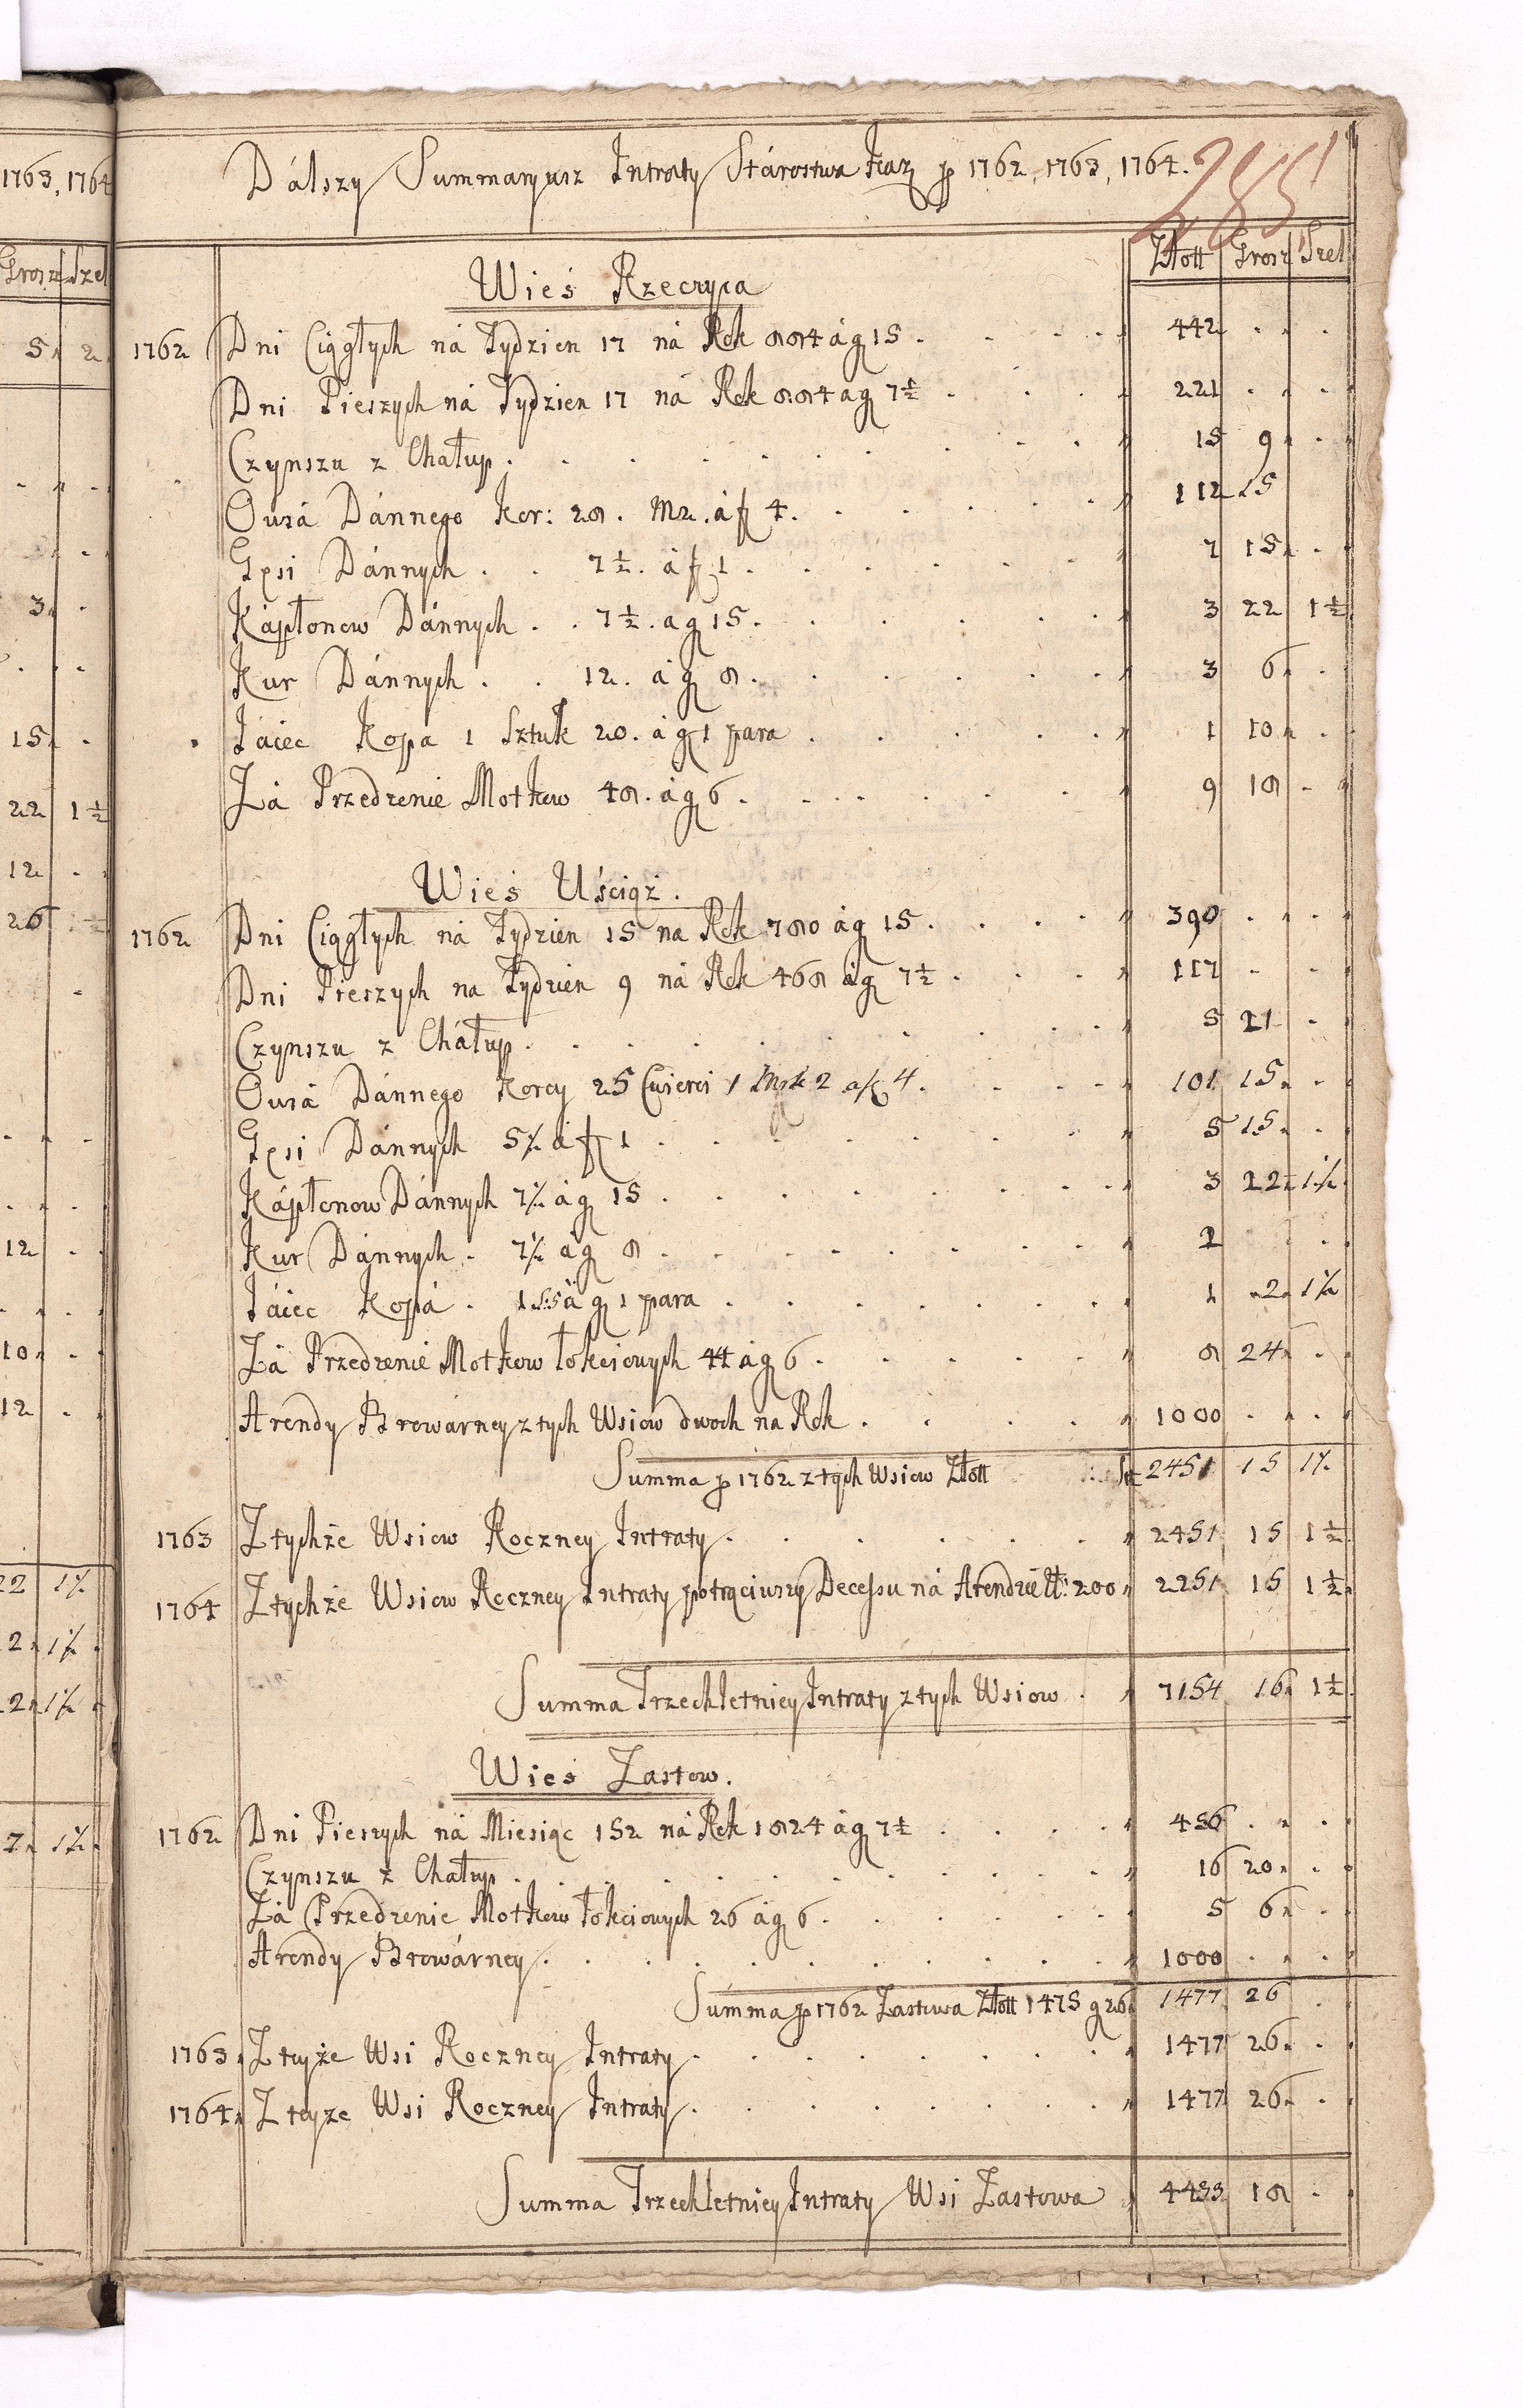 1763, 1764
Grosz Szel
5 2
3
15
22 1½
12
26
12
10
12
22 1½
2 1½
2 1½
7 1½
Dálszy Summaryusz Intraty Stárostwa Kaz p 1762, 1763, 1764.
285
Złott Grosz Szel
Wieś Rzeczyca
1762 Dni Ciągłych ná Tydzien 17 ná Rok 884 á g 15 . 442 . . .
Dni Pieszych ná Tydzien 17 ná Rok 884 á g 7½ . 221 . . .
Czynszu z Chałup . 15 9 . .
Owsá Dánnego Kor: 28. M2. á f 4. 112 15
Gęsi Dánnych . . 7½. á f 1 . 7 15 . .
Kápłonow Dánnych . . 7½. a g 15. 3 22 1½
Kur Dánnych . . 12. á g 8. 3 6 . .
Jáiec Kopa 1 Sztuk 20. á g 1 para . 1 10 . .
Zá Przedzenie Motkow 48. á g 6 . 9 18 . .
Wieś Uściąż.
1762 Dni Ciągłych ná Tydzien 15 na Rok 780 á g 15 . 390 . . .
Dni Pieszych na Tydzien 9 ná Rok 468 á g 7½ . 117 . . .
Czynszu z Cháłup . 5 21 . .
Owsá Dánnego Korcy 25 Cwierci 1 Mrk 2 a f 4. 101 15 . .
Gęsi Dánnych 5½ á f 1 . 5 15 . .
Kápłonow Dánnych 7½ á g 15 . 3 22 1½
Kur Dánnych . 7½ á g 8 . 2 . .
Jáiec Kopá . 1 S: 5 á g 1 para . 1 2 1½
Zá Przedzenie Motkow łokciowych 44 á g 6 . 8 24 . .
Arendy Browárney z tych Wsiow dwoch na Rok . 1000 . . .
Summa p 1762 z tych Wsiow Złott 2451 15 1½
1763 Z tychże Wsiow Roczney Intraty . 2451 15 1½
1764 Z tychże Wsiow Roczney Intraty potrąciwszy Decessu ná Arendzie Zł: 200 2251 15 1½
Summa Trzechletniey Intraty z tych Wsiow . 7154 16 1½
Wieś Zastow.
1762 Dni Pieszych ná Miesiąc 152 ná Rok 1824 á g 7½ . 456 . . .
Czynszu z Chałup . 16 20 . .
Zá Przedzenie Motkow łokciowych 26 á g 6 . 5 6 . .
Arendy Browárney . 1000 . . .
Summa p 1762 Zastowa Złott 1475 g 26 1477 26 .
1763 Z teyże Wsi Roczney Intraty . 1477 26 . .
1764 Z teyze Wsi Roczney Intraty . 1477 26 . .
Summa Trzechletniey Intraty Wsi Zastowa 4433 18 . .